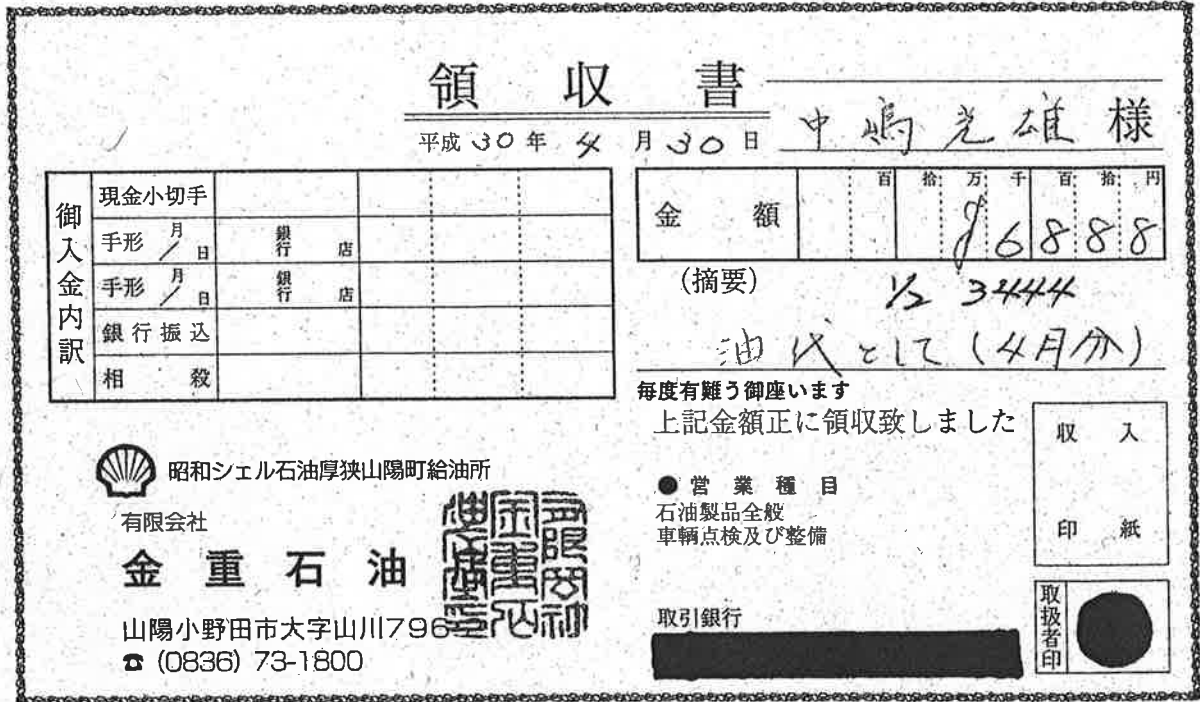 領収書
平成30年4月30日
中嶋光雄様
御入金内訳
現金小切手
手形 月/日 銀行 店
手形 月/日 銀行 店
銀行振込
相殺
金額 百拾万千百拾円
6888
(摘要)
1/2 3444
油代として(4月分)
毎度有難う御座います
上記金額正に領収致しました
収入
印紙
昭和シェル石油厚狭山陽町給油所
有限会社
金重石油店
山陽小野田市大字山川796
☎ (0836) 73-1800
●営業種目
石油製品全般
車輌点検及び整備
取引銀行
取扱者印